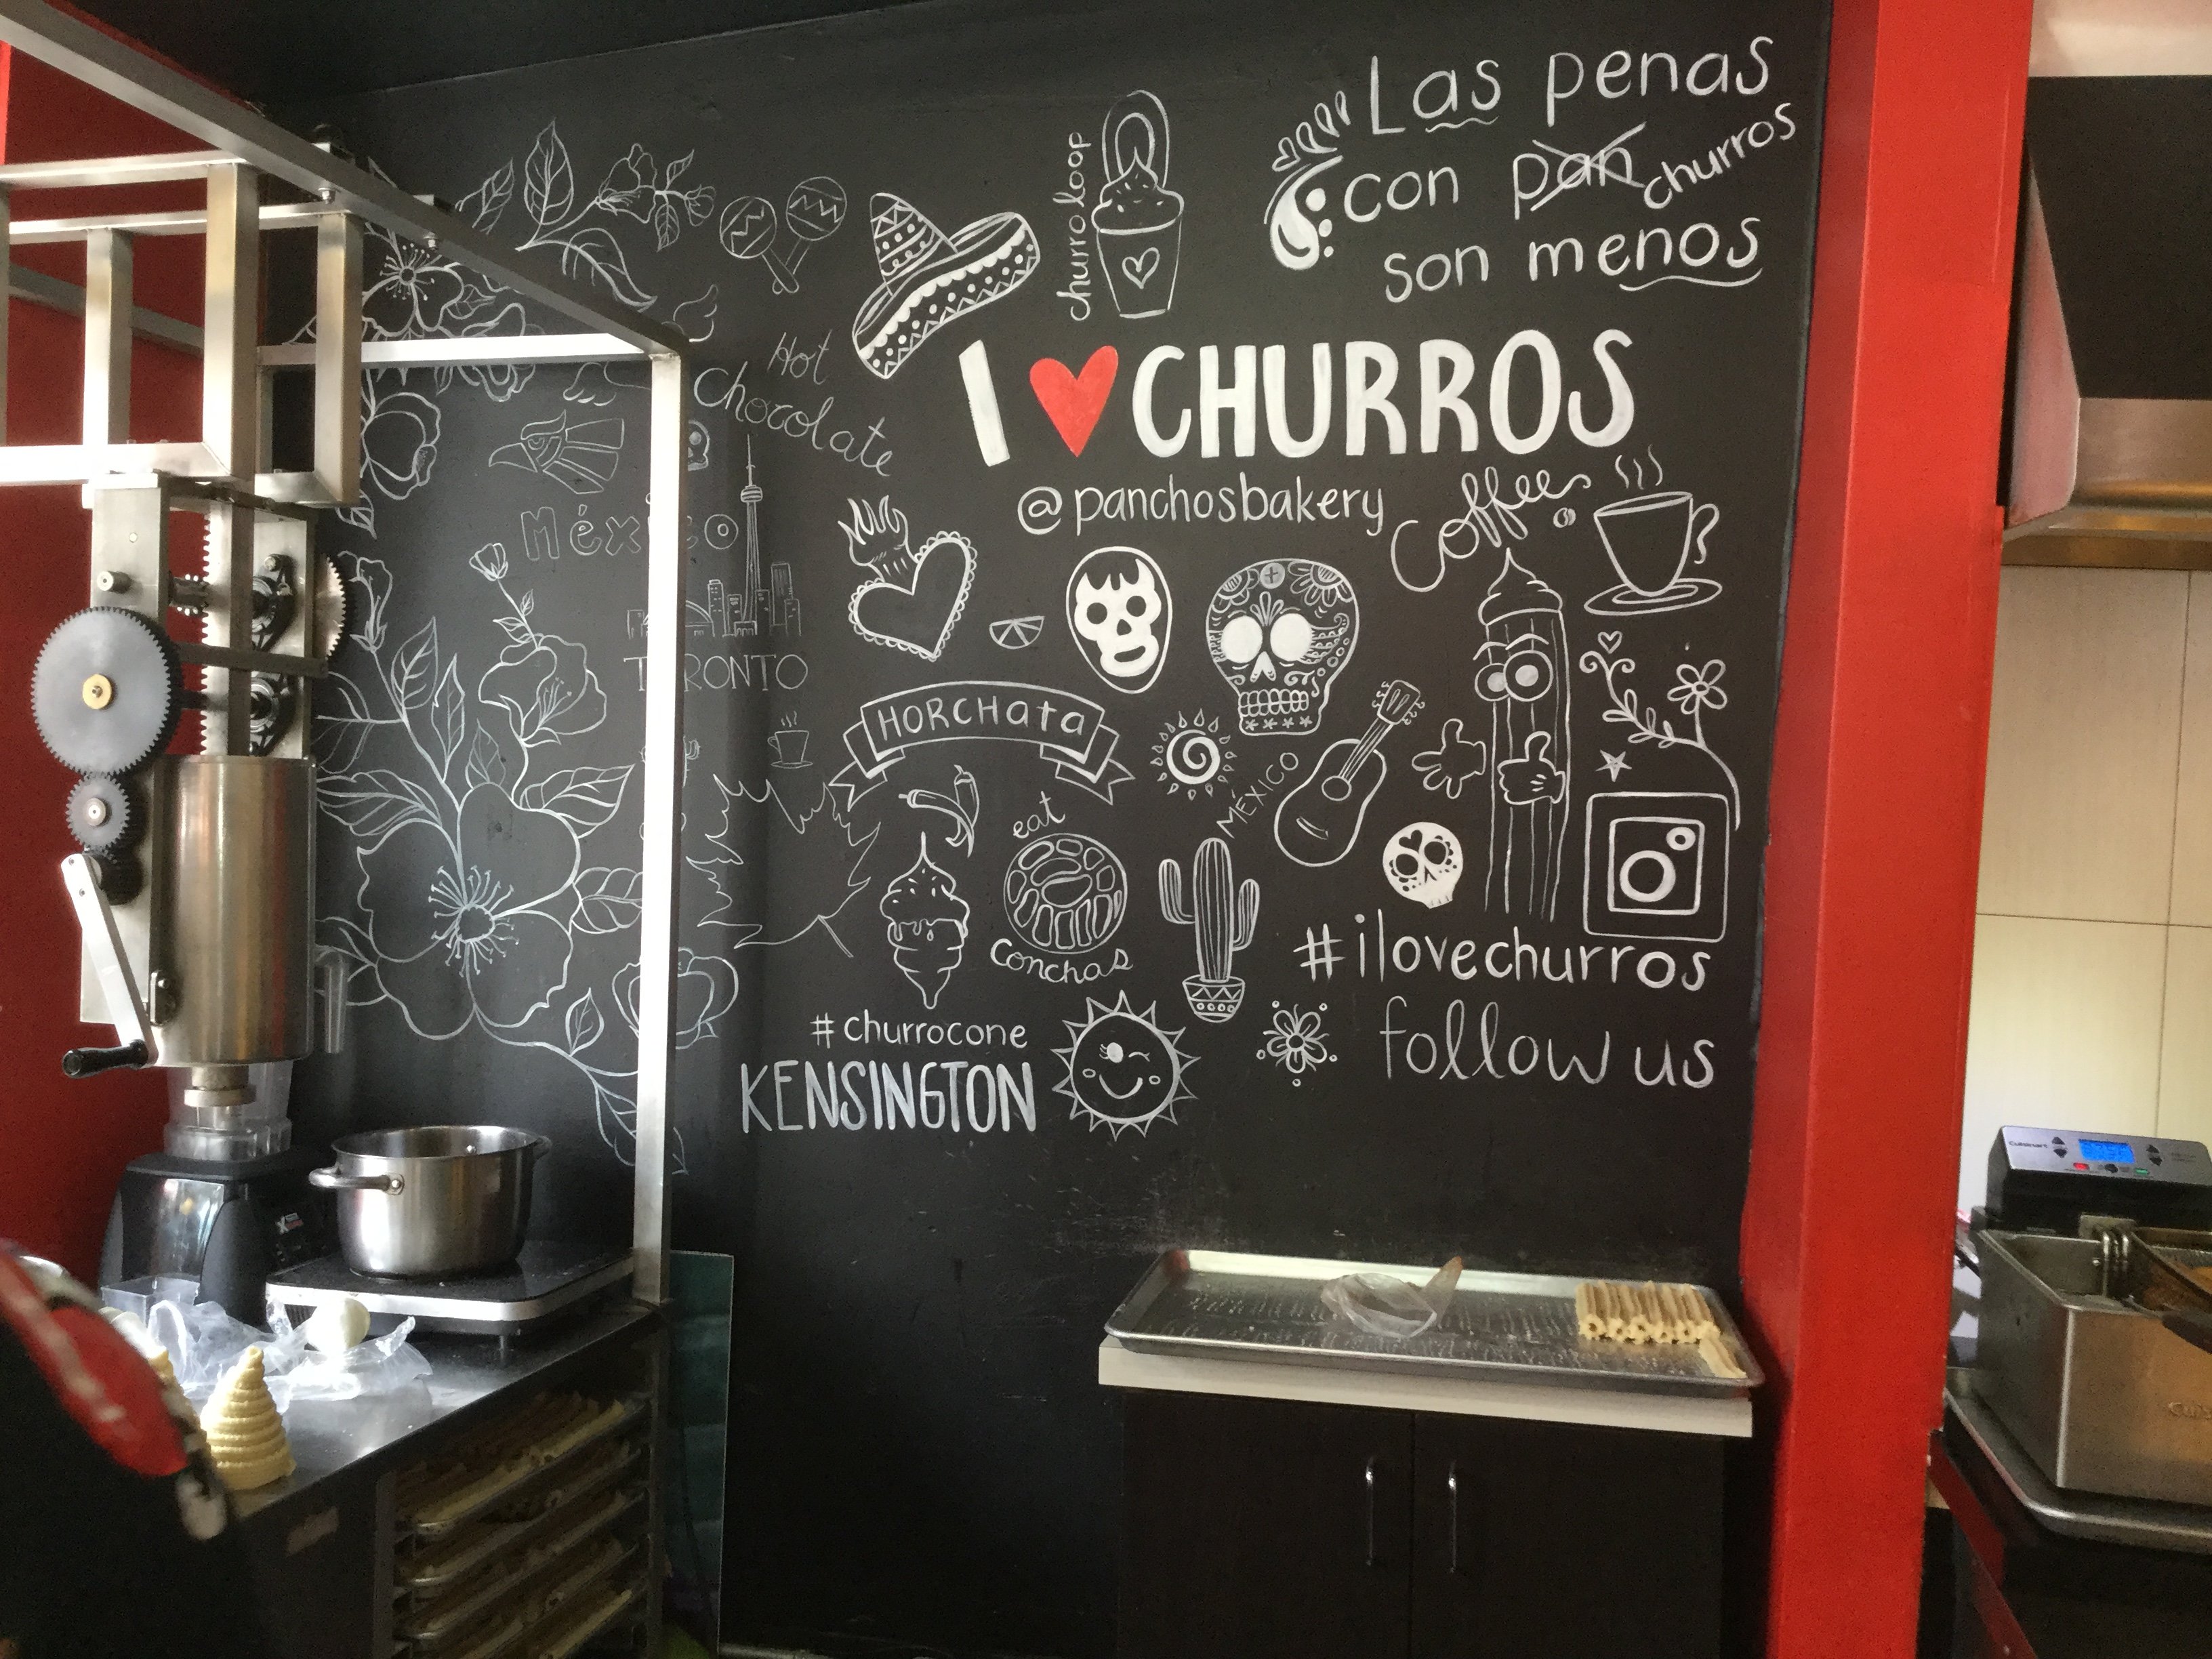 Las penas
con pan churros
son menos
churro loop
I ❤ CHURROS
@panchosbakery
Hot
Chocolate
Coffee
México
TORONTO
HORCHATA
MÉXICO
eat
Conchas
#ilovechurros
follow us
#churrocone
KENSINGTON
Cuisinart